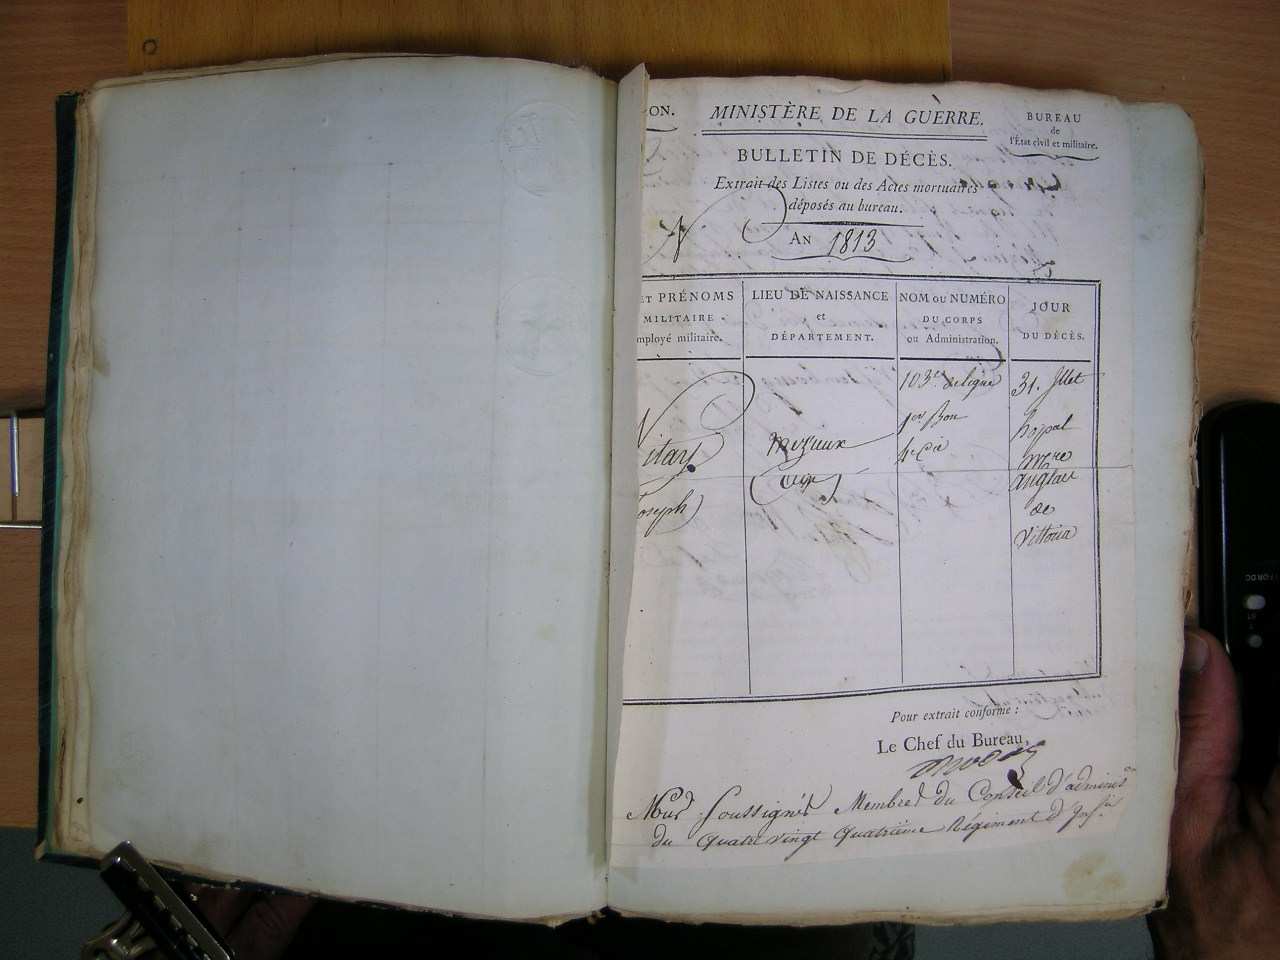 ON.
MINISTÈRE DE LA GUERRE.
BUREAU
de
l'État civil et militaire.
BULLETIN DE DÉCÈS.
Extrait des Listes ou des Actes mortuaires
déposés au bureau.
N
AN 1813
ET PRÉNOMS
MILITAIRE
mployé militaire.
LIEU DE NAISSANCE
et
DÉPARTEMENT.
NOM OU NUMÉRO
DU CORPS
ou Administration.
JOUR
DU DÉCÈS.
Vitay
oseph
103e de ligne
1er Bon
4e Cie
31. Jllet
hopal
anglais
de
Vittoria
Pour extrait conforme :
Le Chef du Bureau,
Nous Soussignés Membres du Conseil d'adminis
du quatre vingt quatrième Régiment d'Inf.ie